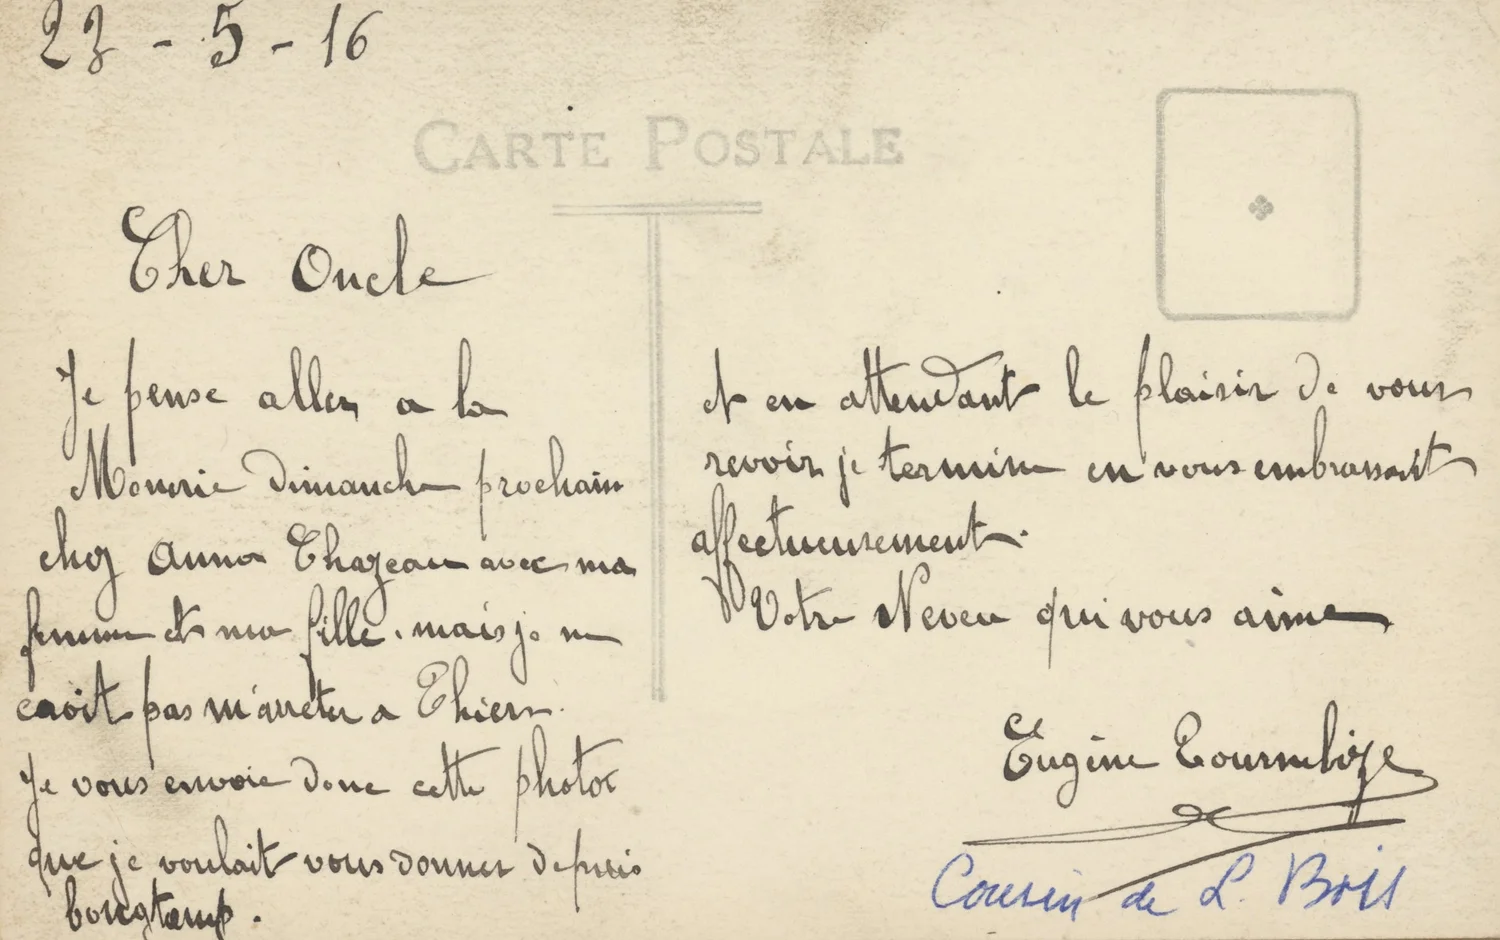 23 - 5 - 16
CARTE POSTALE
Cher Oncle
Je pense aller a la
Monerie dimanche prochain
chez Anna Chazeau avec ma
femme et ma fille. mais je ne
croit pas m'arreter a Thiers.
Je vous envoie donc cette photo
que je voulait vous donner depuis
longtemp.
et en attendant le plaisir de vous
revoir je termine en vous embrassant
affectueusement.
Votre Neveu qui vous aime
Eugène Tournebize
Cousin de L.